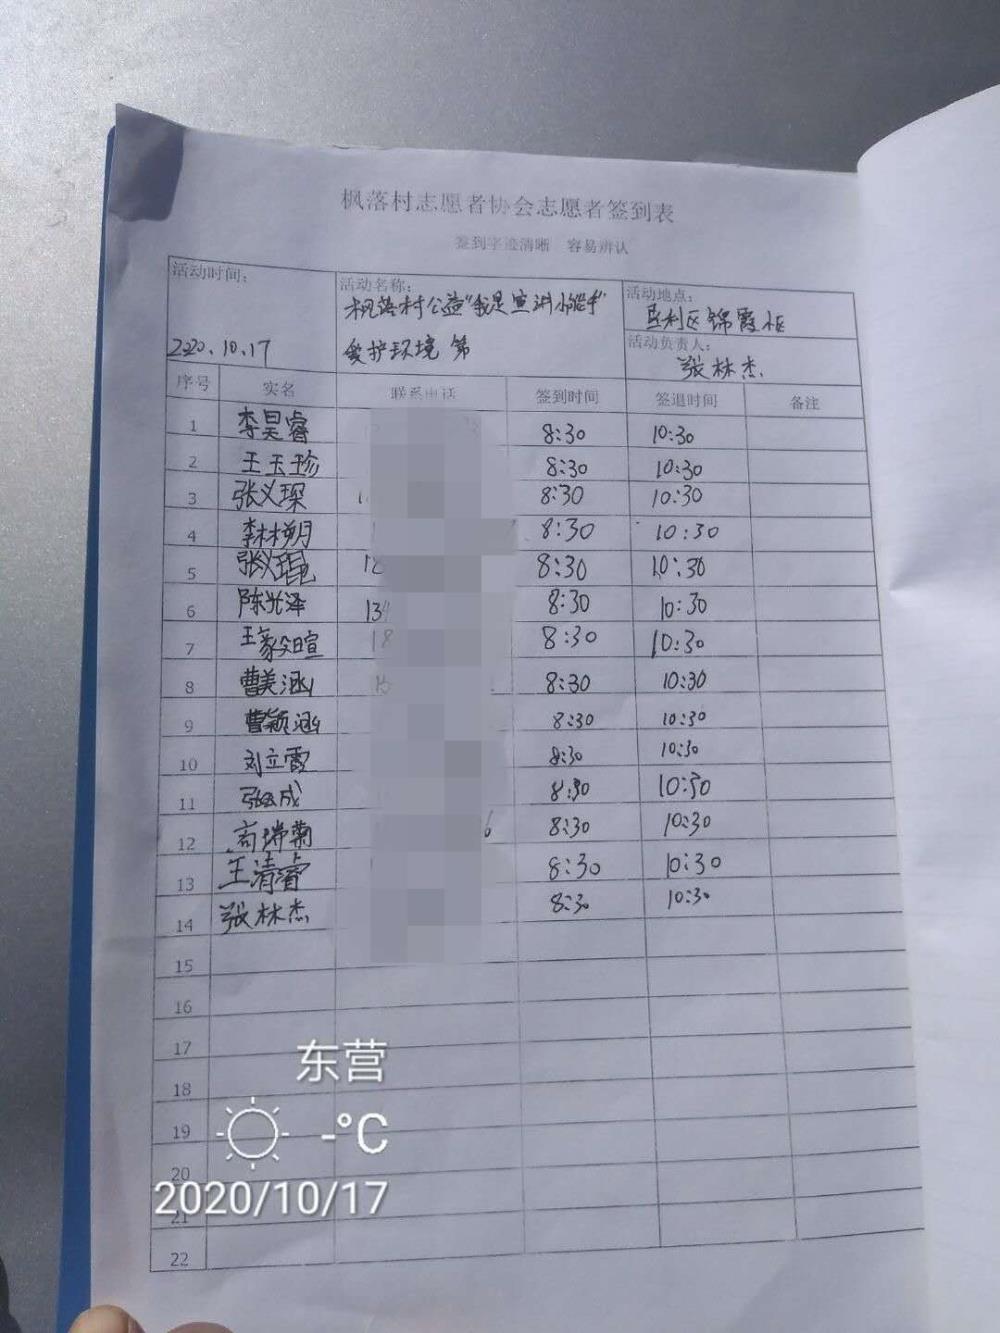 枫落村志愿者协会志愿者签到表
签到字迹清晰 容易辨认
活动时间: 2020.10.17
活动名称: 枫落村公益"我是宣讲小能手"
爱护环境 第
活动地点: 垦利区锦霞小区
活动负责人: 张林杰
序号 实名 联系电话 签到时间 签退时间 备注
1 李昊睿 8:30 10:30
2 王玉珍 8:30 10:30
3 张义琛 8:30 10:30
4 李林朔 8:30 10:30
5 张义琨 18 8:30 10:30
6 陈光泽 134 8:30 10:30
7 王豪暄 18 8:30 10:30
8 曹美涵 15 8:30 10:30
9 曹颖涵 8:30 10:30
10 刘立霞 8:30 10:30
11 张成 8:30 10:30
12 高瑞菊 6 8:30 10:30
13 王清睿 8:30 10:30
14 张林杰 8:30 10:30
15
16
17
18
19
20
21
22
东营
-°C
2020/10/17